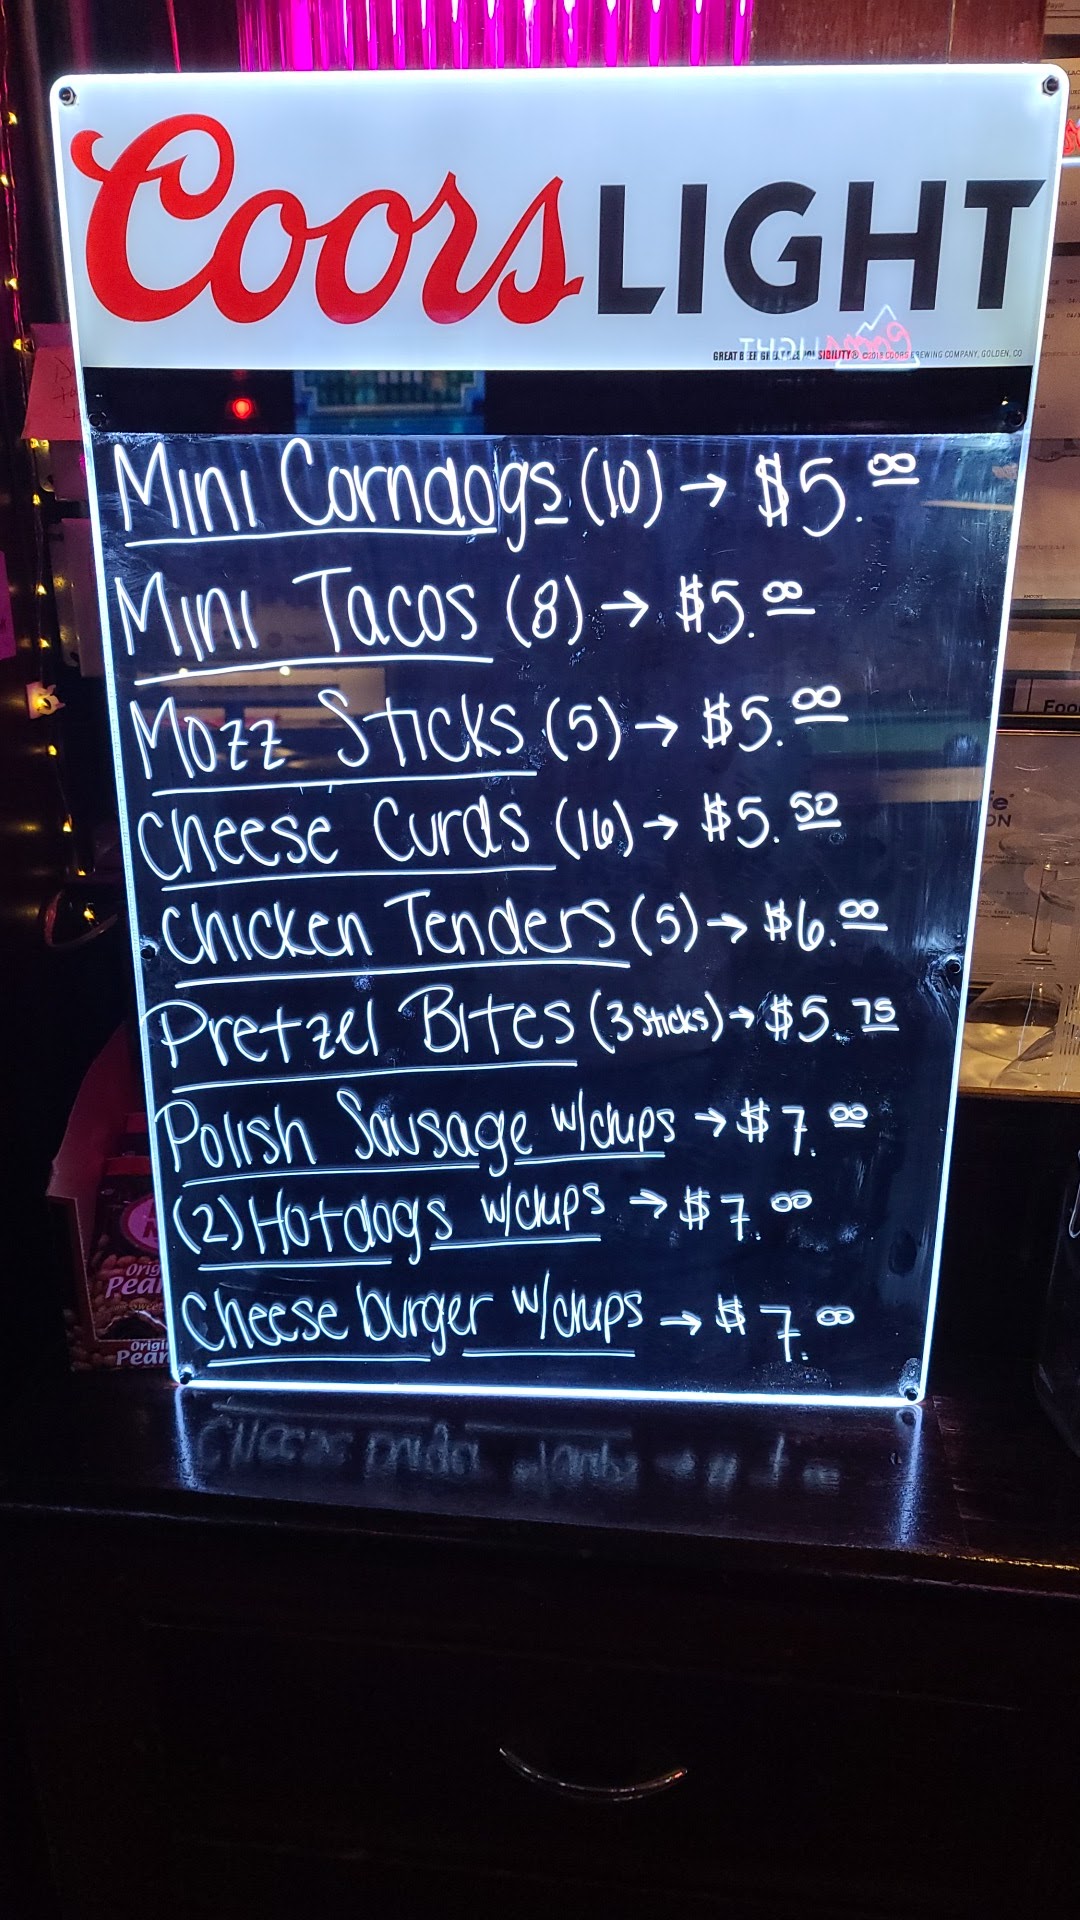 Coors LIGHT
GREAT BEER GREAT RESPONSIBILITY® ©2018 COORS BREWING COMPANY, GOLDEN, CO
Mini Corndogs (10) → $5.00
Mini Tacos (8) → $5.00
Mozz Sticks (5) → $5.00
Cheese Curds (16) → $5.50
Chicken Tenders (5) → $6.00
Pretzel Bites (3 Sticks) → $5.75
Polish Sausage w/chips → $7.00
(2) Hotdogs w/chips → $7.00
Cheese burger w/chips → $7.00